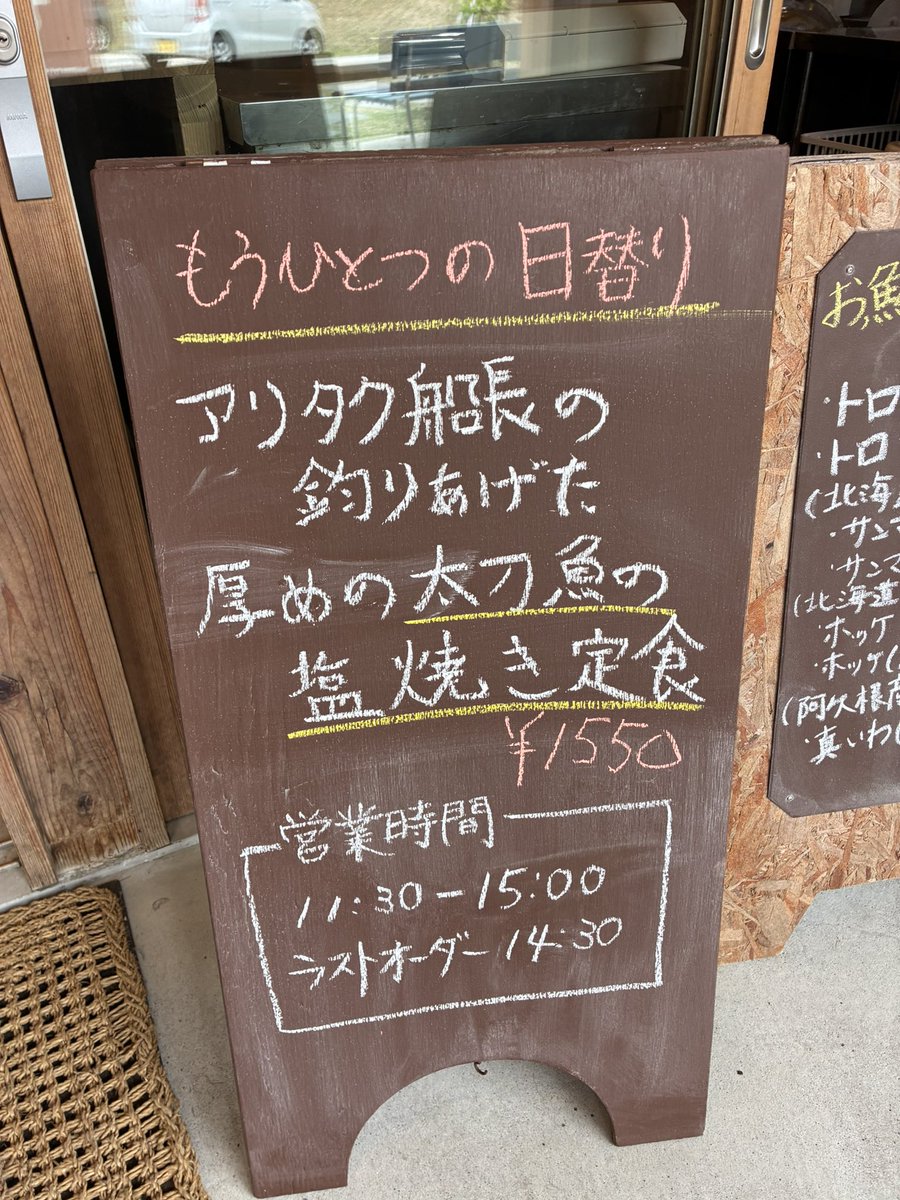 もうひとつの日替り
アリタク船長の
釣りあげた
厚めの太刀魚の
塩焼き定食
¥1550
営業時間
11:30-15:00
ラストオーダー 14:30
お魚
・トロ
・トロ
(北海
・サンマ
・サンマ
(北海道
・ホッケ
・ホッケ(
(阿久根産
・真いわし